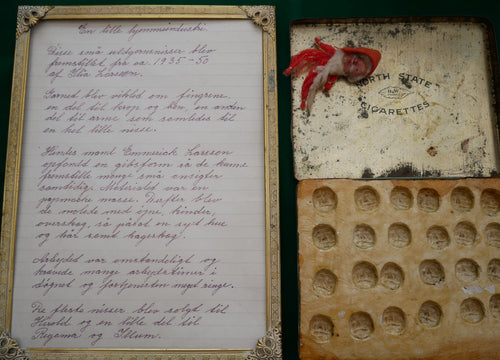 En lille hjemmeindustri.
Disse små uldgarnsnisser blev
fremstillet fra ca. 1935-50
af Thea Larsson.
Garned blev viklet om fingrene,
en del til krop og ben, en anden
del til arme som samledes til
en hel lille nisse.
Hendes mand Emmerick Larsson
opfandt en gibsform så de kunne
fremstille mange små ansigter
samtidig. Materialet var en
papmaske masse. Derefter blev
de malede med øjne, kinder,
overskæg, så påsat en syet hue
og hår samt hageskæg.
Arbejdet var omstændeligt og
krævde mange arbejdstimer i
døgnet og fortjenesten meget ringe.
De fleste nisser blev solgt til
Herold og en lille del til
og Illum.
NORTH STATE
CIGARETTES